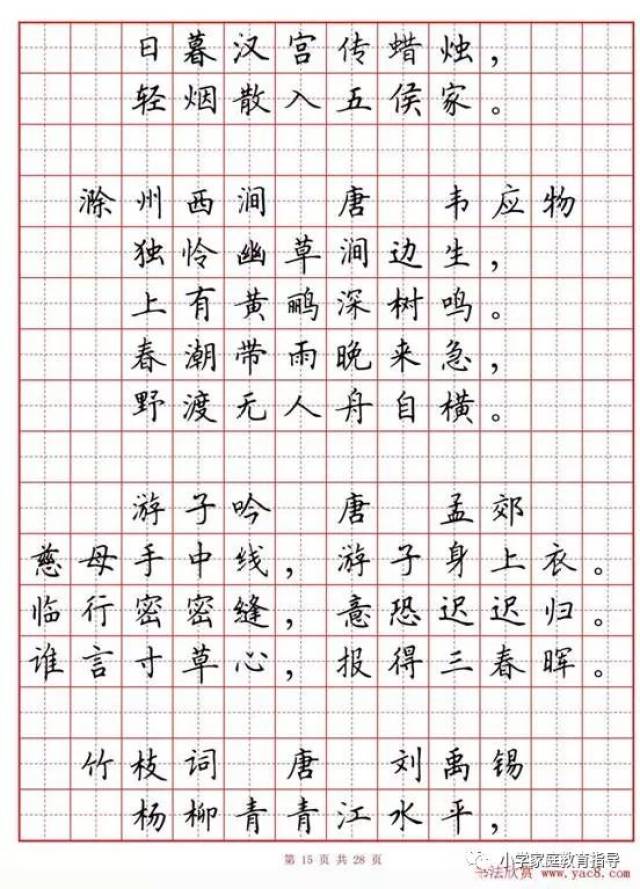 日暮汉宫传蜡烛，
轻烟散入五侯家。
滁州西涧 唐 韦应物
独怜幽草涧边生，
上有黄鹂深树鸣。
春潮带雨晚来急，
野渡无人舟自横。
游子吟 唐 孟郊
慈母手中线，游子身上衣。
临行密密缝，意恐迟迟归。
谁言寸草心，报得三春晖。
竹枝词 唐 刘禹锡
杨柳青青江水平，
第 15 页 共 28 页
小学家庭教育指导
书法欣赏 www.yac8.com